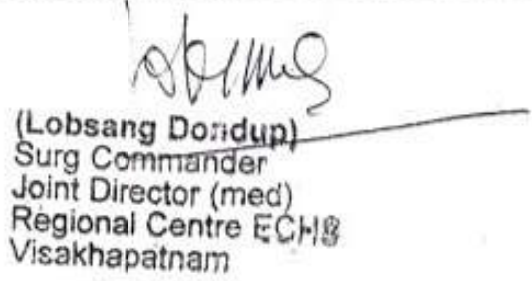 (Lobsang Dondup)
Surg Commander
Joint Director (med)
Regional Centre ECHS
Visakhapatnam